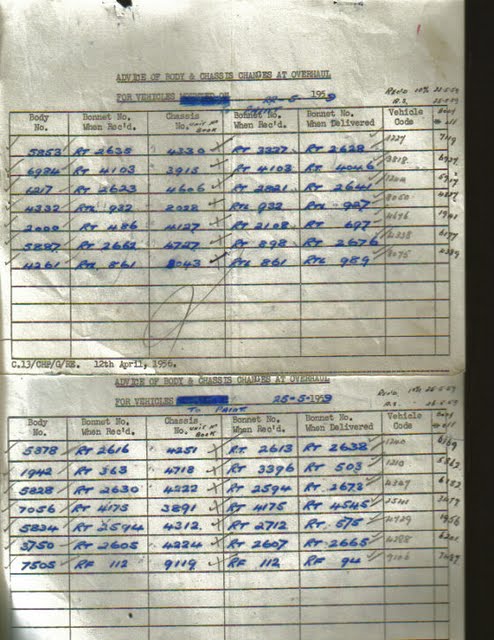 ADVICE OF BODY & CHASSIS CHANGES AT OVERHAUL
Rec'd 10% 22-5-59
FOR VEHICLES 22-5-1959
PAINT
Body No. Bonnet No. When Rec'd. Chassis No. unit Nº Book Bonnet No. When Rec'd. Bonnet No. When Delivered Vehicle Code Body
5853 RT 2635 4330 RT 3327 RT 2628 1227
6984 RT 4103 3915 RT 4103 RT 4046 3818
6217 RT 2623 4606 RT 2821 RT 2641
4332 RTL 932 2028 RTL 932 RTL 927 8050
2000 RT 486 4127 RT 2108 RT 697 4676
5887 RT 2662 4727 RT 898 RT 2676
4261 RTL 861 8043 RTL 861 RTL 989 8075
C.13/CHP/G/RE. 12th April, 1956.
ADVICE OF BODY & CHASSIS CHANGES AT OVERHAUL
Rec'd 10% 25-5-59
FOR VEHICLES 25-5-1959
TO PAINT
Body No. Bonnet No. When Rec'd. Chassis No. unit Nº Book Bonnet No. When Rec'd. Bonnet No. When Delivered Vehicle Code Body
5378 RT 2616 4251 RT 2613 RT 2638 1240
1942 RT 563 4718 RT 3396 RT 503 1210
5828 RT 2630 4222 RT 2594 RT 2673 4247
7056 RT 4175 3891 RT 4175 RT 4545
5824 RT 2594 4312 RT 2712 RT 575 4729
3750 RT 2605 4224 RT 2607 RT 2665 4288
7505 RF 112 9119 RF 112 RF 94